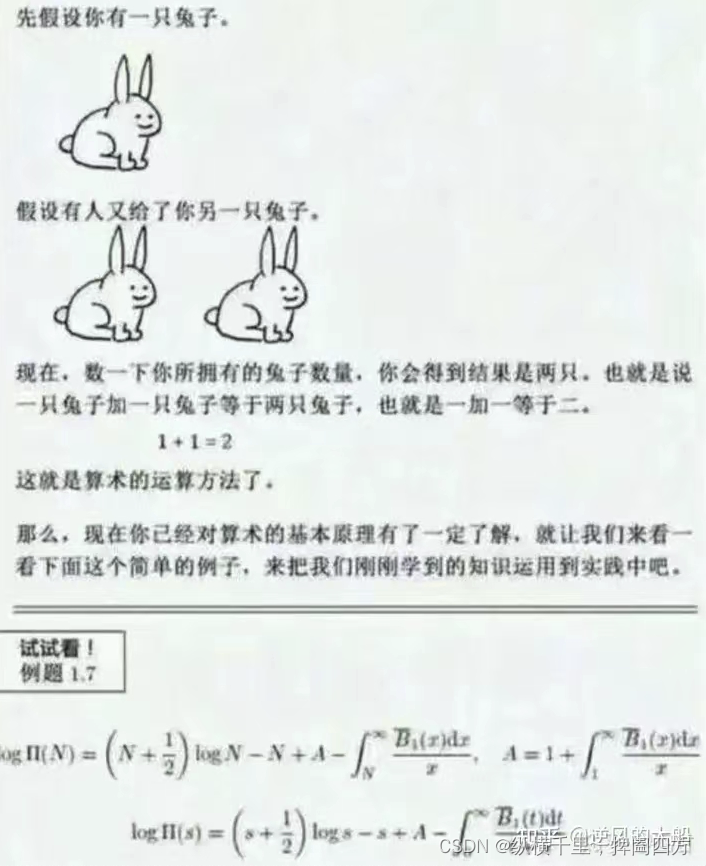 先假设你有一只兔子。
假设有人又给了你另一只兔子。
现在，数一下你所拥有的兔子数量，你会得到结果是两只。也就是说
一只兔子加一只兔子等于两只兔子，也就是一加一等于二。
1 + 1 = 2
这就是算术的运算方法了。
那么，现在你已经对算术的基本原理有了一定了解，就让我们来看一
看下面这个简单的例子，来把我们刚刚学到的知识运用到实践中吧。
试试看！
例题 1.7
log Π(N) = (N + 1/2) log N − N + A − ∫_N^∞ B̅₁(x)dx/x, A = 1 + ∫_1^∞ B̅₁(x)dx/x
log Π(s) = (s + 1/2) log s − s + A − ∫^∞ B̅₁(t)dt
知乎 @逆风的木船
CSDN @纵横千里，捭阖四方